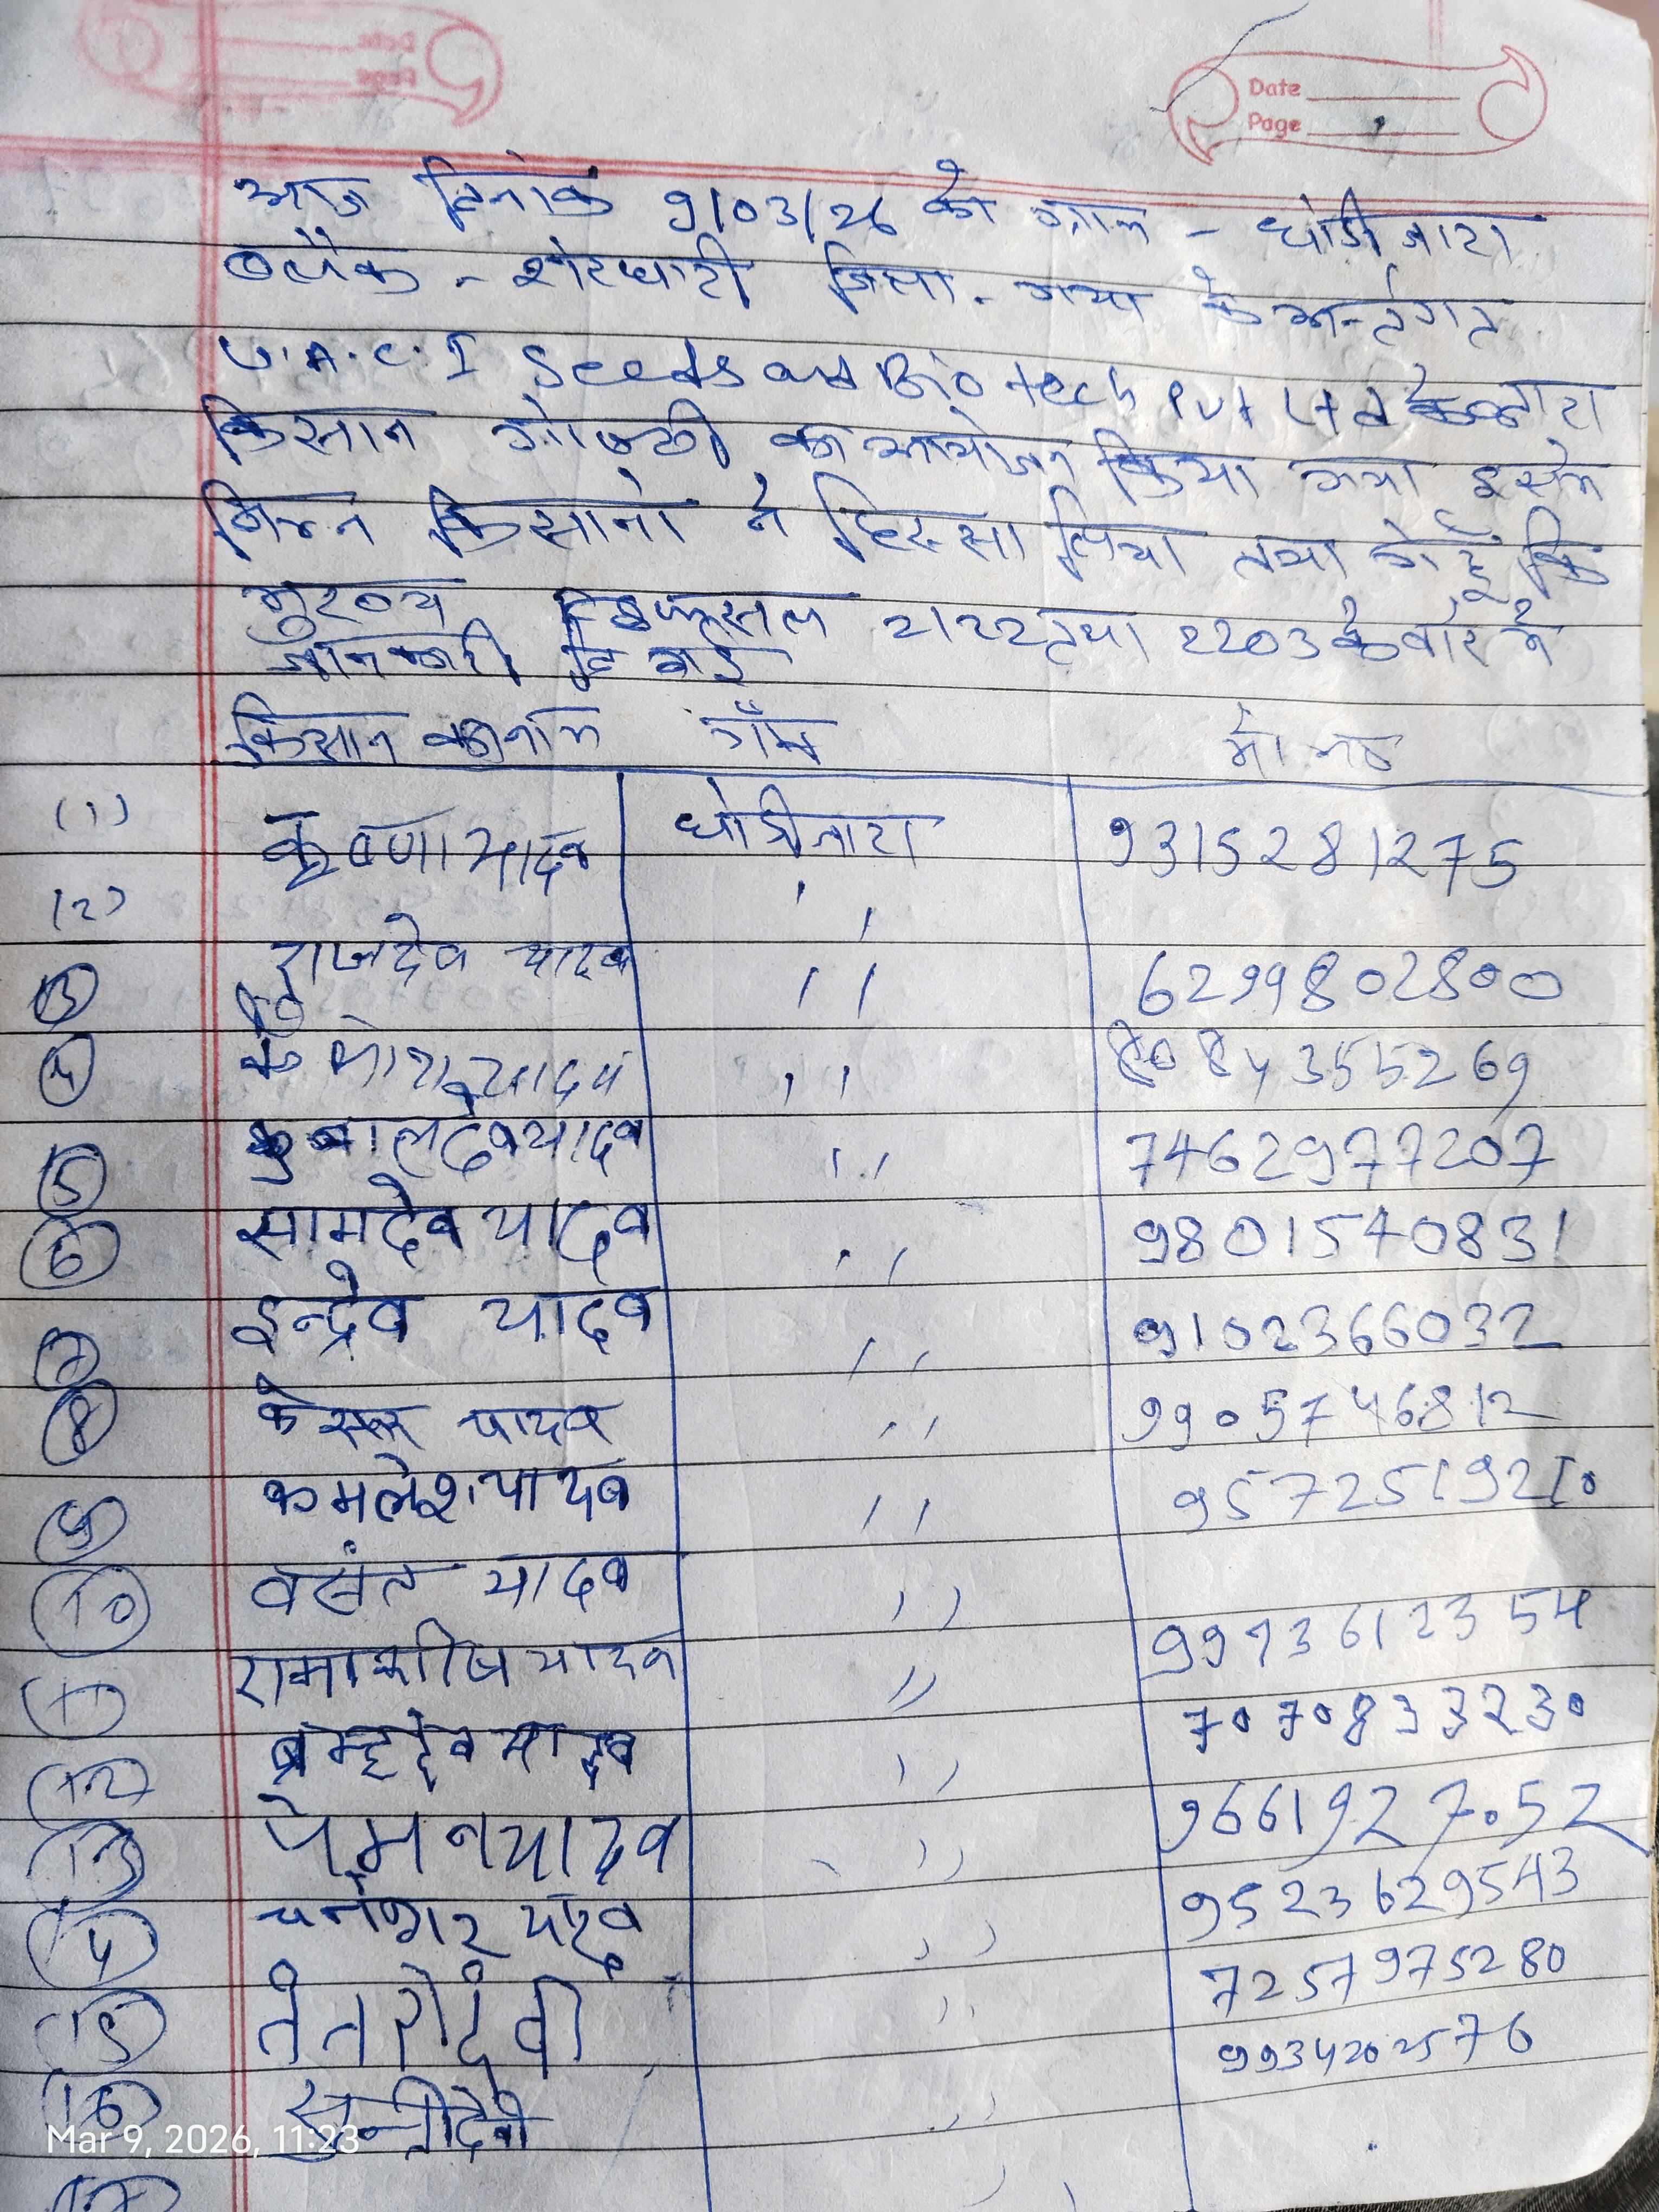 Date
Page
आज दिनांक 9/03/26 को ग्राम - घोडीजारा
ब्लॉक - शेरघाटी जिला - गया के अन्तर्गत
U.A.C.I Seeds and Bio tech Pvt Ltd के द्वारा
किसान गोष्ठी का आयोजन किया गया इसमे
निम्न किसानो ने हिस्सा लिया तथा गेहूँ कि
मुख्य फसल 2122 तथा 2203 के बारे मे
जानकारी दि गई
किसान का नाम गाँव मो नं
(1) कृष्णा यादव घोडीजारा 9315281275
(2) ''
राजदेव यादव
(3) '' 6299802800
(4) यादव '' 8084355269
(5) यादव '' 7462977207
(6) सामदेव यादव '' 9801540831
इन्द्रेव यादव 9102366032
(7) ''
(8) केसर यादव '' 9905746812
कमलेश यादव 9572519210
(9) ''
(10) वसंत यादव ''
9973612354
(11) रामाशीष यादव ''
7070833230
(12) ब्रम्हदेव यादव ''
9661927052
(13) पेमन यादव ''
9523629543
(14) यादव ''
7257975280
(15) देवी ''
9934202576
(16) देवी ''
Mar 9, 2026, 11:23
(17)